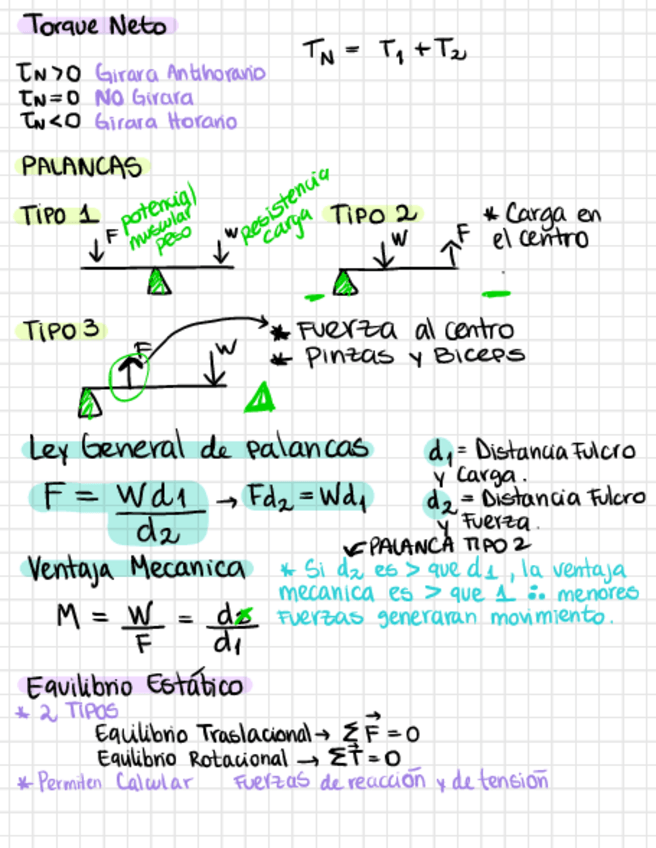 Torque Neto
TN = T1 + T2
τN>0 Girara Antihorario
τN=0 NO Girara
τN<0 Girara Horario
PALANCAS
TIPO 1
F
potencial
muscular
peso
W
Resistencia
carga
TIPO 2
W
F
* Carga en
el centro
TIPO 3
F
W
* Fuerza al centro
* Pinzas y Biceps
Ley General de palancas
F = Wd1/d2 → Fd2 = Wd1
d1 = Distancia Fulcro
y Carga.
d2 = Distancia Fulcro
y Fuerza.
↙PALANCA TIPO 2
Ventaja Mecanica
* Si d2 es > que d1, la ventaja
mecanica es > que 1 ∴ menores
Fuerzas generaran movimiento.
M = W/F = d2/d1
Equilibrio Estático
* 2 TIPOS
Equilibrio Traslacional → ΣF⃗ = 0
Equilibrio Rotacional → Στ⃗ = 0
* Permiten Calcular Fuerzas de reacción y de tensión